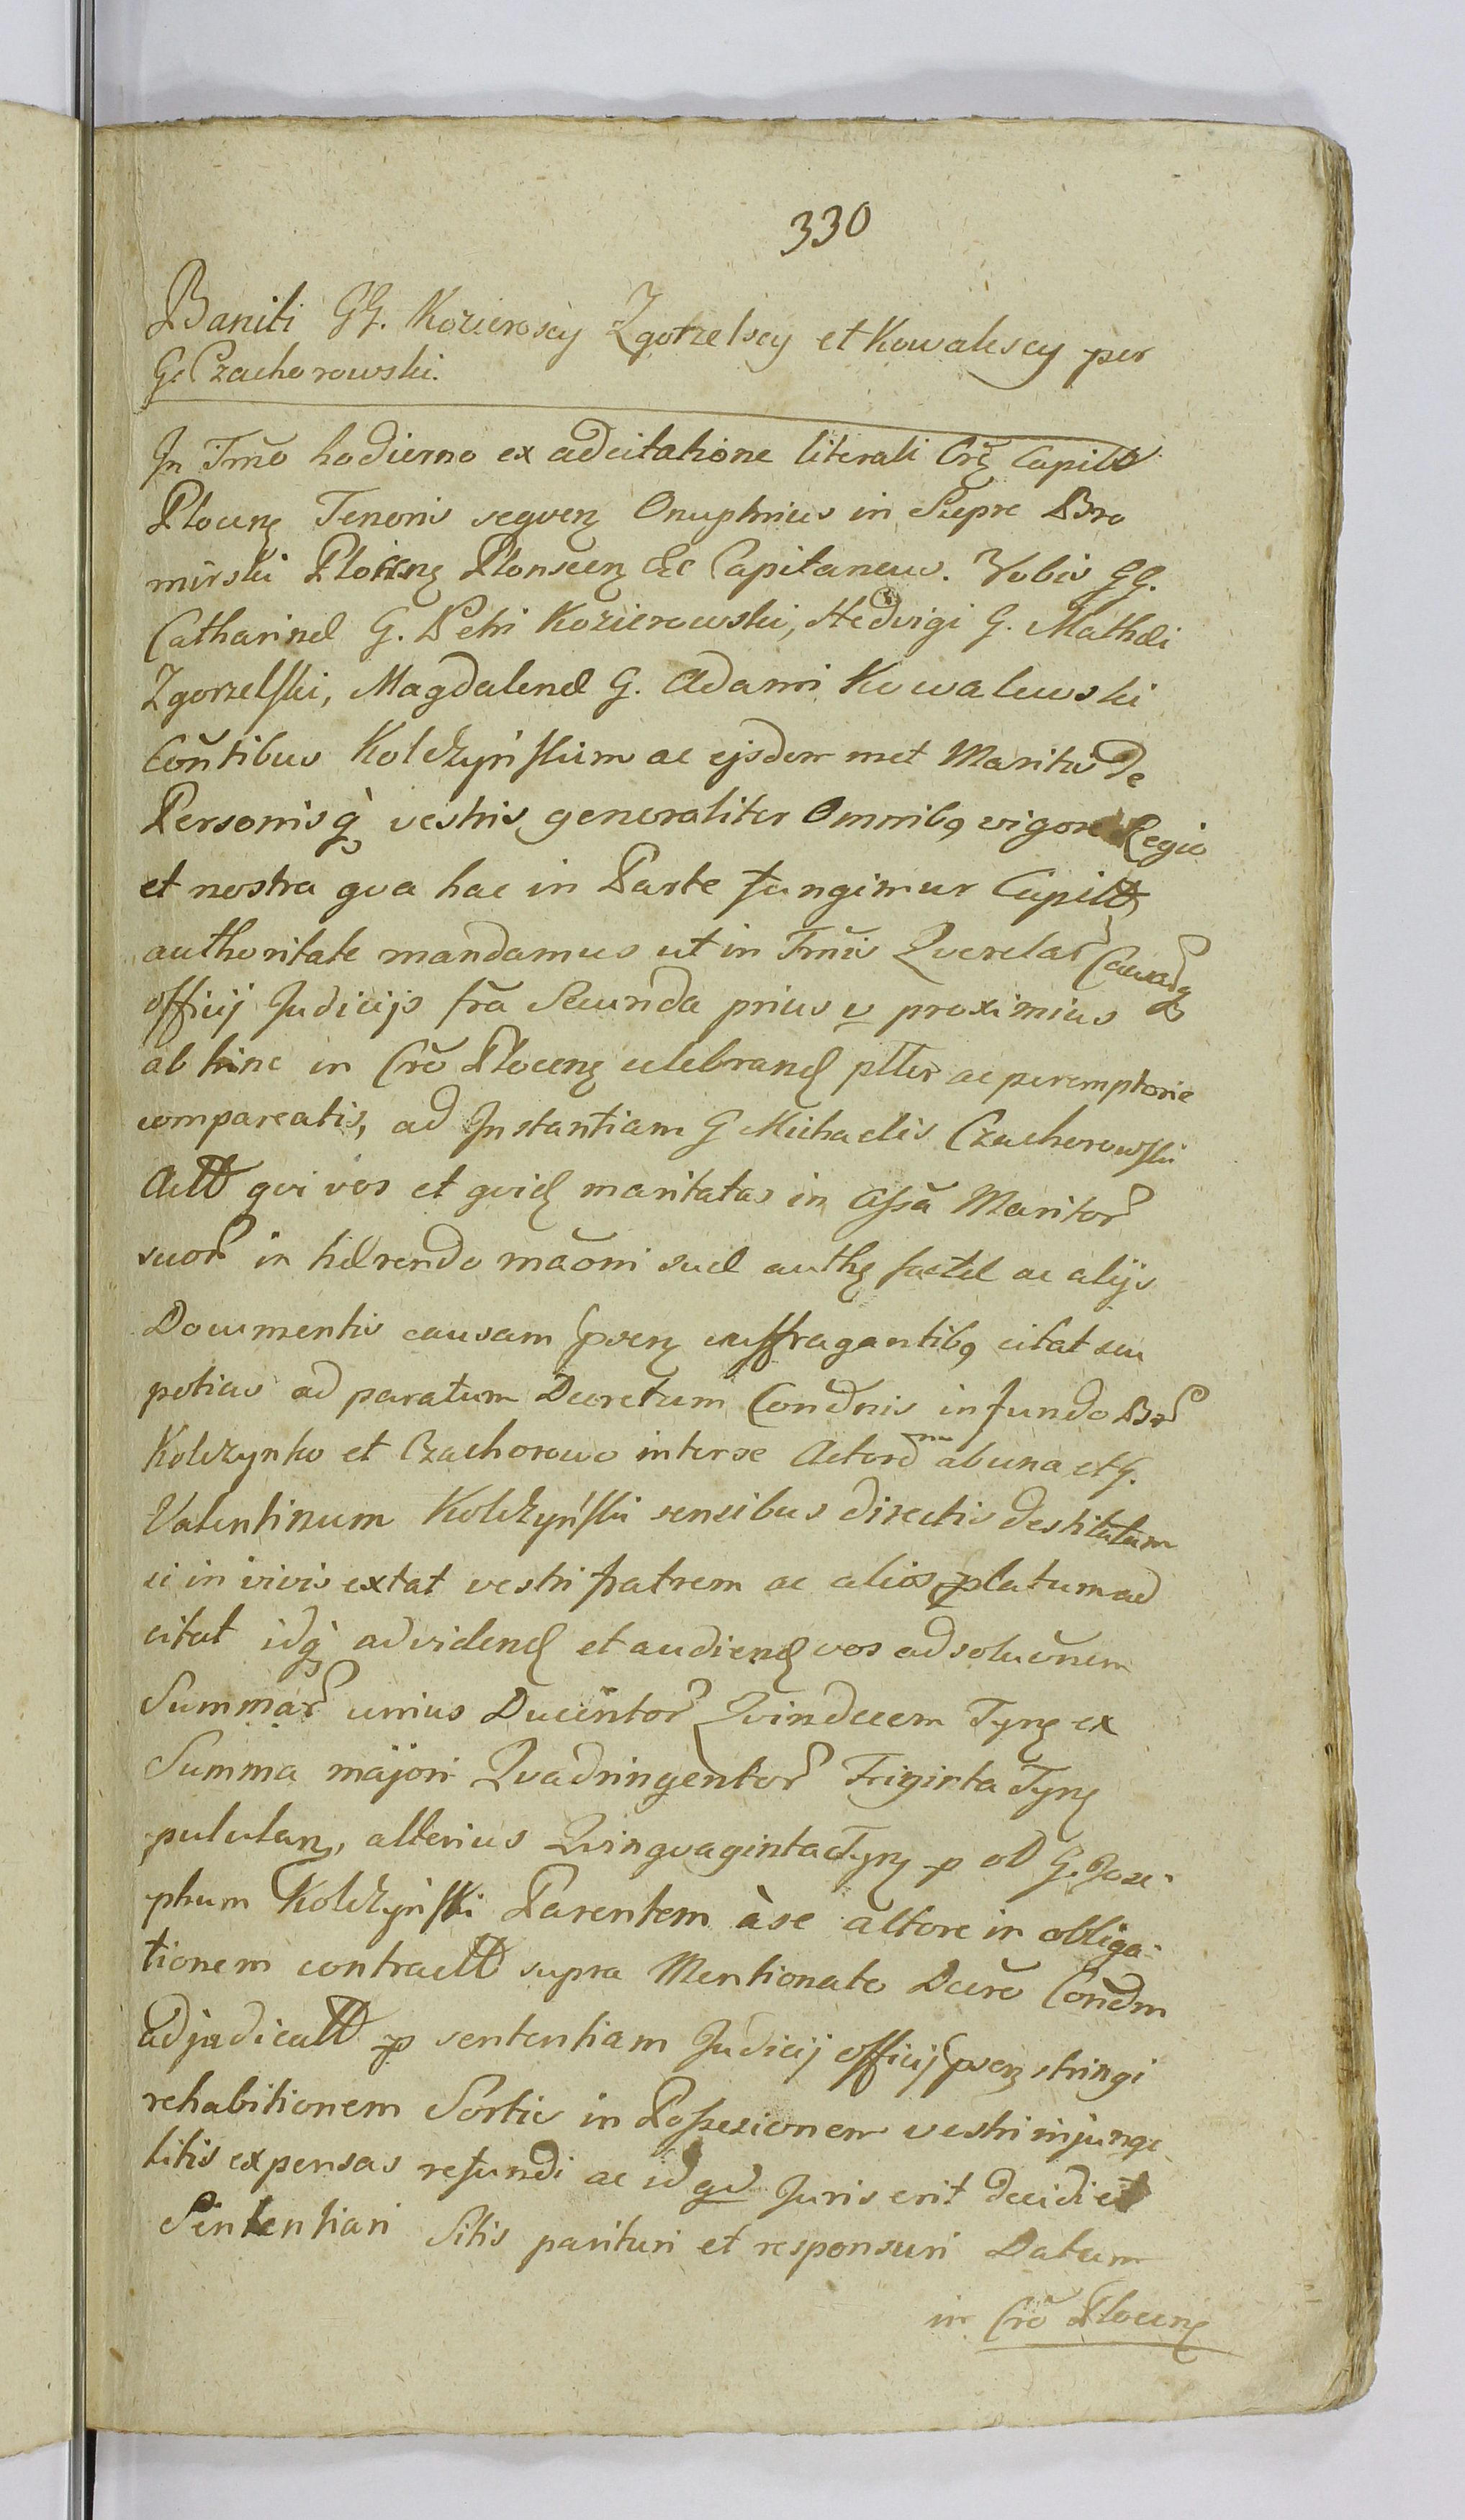 330
Baniti GG. Kozieroscy Zgorzelscy et Kowalescy per
G. Czachorowski.
In Trno hodierno ex adcitatione literali Crę Capitt
Plocenę Tenoris seqvenę Onuphrius in Siepre Bro
mirski Plocenę Plonscenę &c Capitaneus. Vobis GG.
Catharinæ G. Petri Kozierowski, Hedvigi G. Mathæi
Zgorzelski, Magdalenæ G. Adami Kowalewski
Contibus Kolczyńskim ac ejsdem met Maritis de
Personisq vestris generaliter Omnibq vigore Regio
et nostra qva hac in Parte fungimur Capitt
authoritate mandamus ut in Trnis Qverelar Causarq
officij Judicijs fra Secunda prius v proximius
ab hinc in Cro Plocenę celebrand ptter ac peremptorie
compareatis, ad Instantiam G Michaelis Czachorowski
Actt qvi vos et qvid maritatas in Assa Maritor
suor in hærendo maoni suæ authę factæ ac alijs
Documentis causam psenę suffragantibq citat seu
potius ad paratum Decretum Condnis in fundo Bor
Kolczynko et Czachorowo inter se Actorem ab una et G.
Valentinum Kolczyński sensibus directis destitutum
si in vivis extat vestri fratrem ac alios platum ad
citat idq ad vidend et audiend vos ad solucnem
Summar unius Ducentor Qvindecem Tynę ex
Summa majori Qvadringentor Triginta Tynę
pululanę, alterius Qvinqvaginta Tynę p olD G. Jose-
phum Kolczyński Parentem à se actore in obliga-
tionem contractt supra Mentionato Decro Condm
adjudicatt p sententiam Judicij officij psenę stringi
rehabitionem Sortis in Possesionem vestri injungi
litis expensas refundi ac id qd Juris erit decidi et
Sententiari Sitis parituri et responsuri Datum
in Cro Plocenę